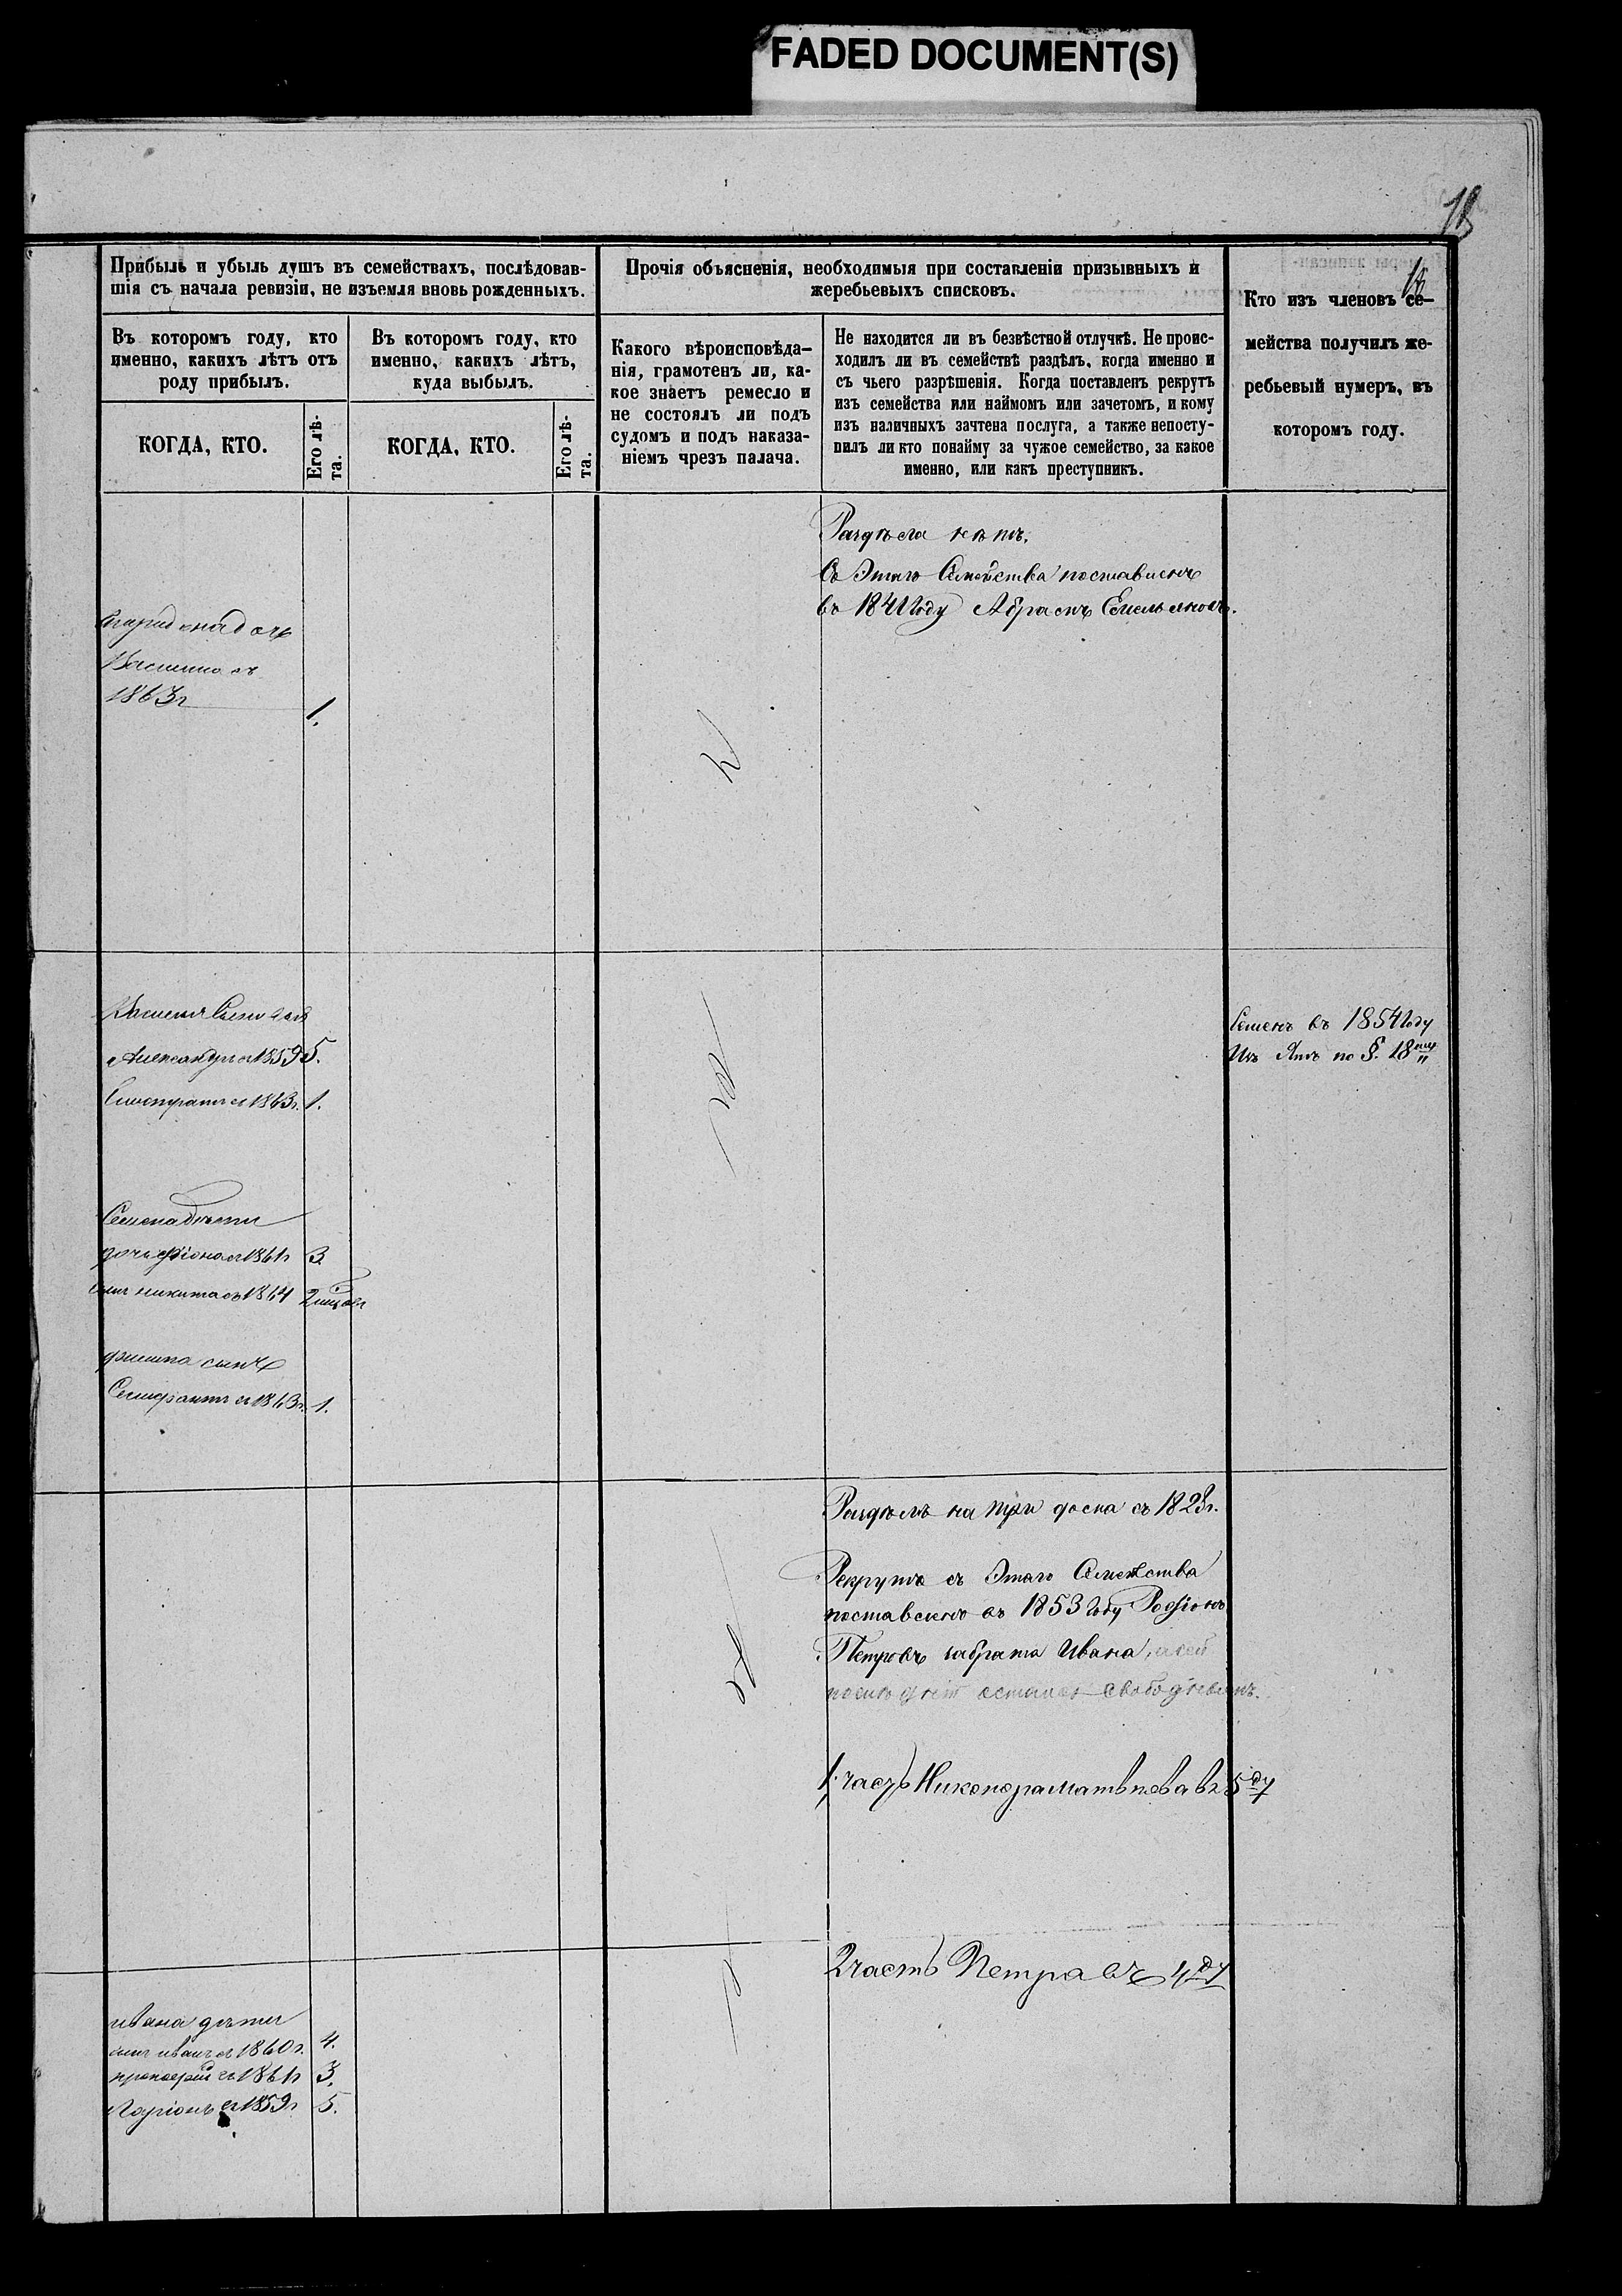 FADED DOCUMENT(S)
18
Прибыль и убыль душъ въ семействахъ, послѣдовав-
шія съ начала ревизіи, не изъемля вновь рожденныхъ.
Прочія объясненія, необходимыя при составленіи призывныхъ и
жеребьевыхъ списковъ.
Кто изъ членовъ се-
мейства получилъ же-
ребьевый нумеръ, въ
которомъ году.
Въ которомъ году, кто
именно, какихъ лѣтъ отъ
роду прибылъ.
Въ которомъ году, кто
именно, какихъ лѣтъ,
куда выбылъ.
Какого вѣроисповѣда-
нія, грамотенъ ли, ка-
кое знаетъ ремесло и
не состоялъ ли подъ
судомъ и подъ наказа-
ніемъ чрезъ палача.
Не находится ли въ безвѣстной отлучкѣ. Не проис-
ходилъ ли въ семействѣ раздѣлъ, когда именно и
съ чьего разрѣшенія. Когда поставленъ рекрутъ
изъ семейства или наймомъ или зачетомъ, и кому
изъ наличныхъ зачтена послуга, а также непосту-
пилъ ли кто понайму за чужое семейство, за какое
именно, или какъ преступникъ.
КОГДА, КТО.
Его лѣ-
та.
КОГДА, КТО.
Его лѣ-
та.
Раздѣла нѣтъ.
Съ Этаго Семейства поставленъ
въ 1841 Году Абрамъ Емельяновъ.
1863г 1.
Василья
Александръ съ 1859 5.
съ 1863г. 1.
Семенъ въ 1854 Году
по §. 18му
Семена дѣти
дочь съ 1861г 3
сынъ никита съ 1864
сынъ
съ 1863г. 1.
Раздѣлъ на три дома съ 1823г.
Рекрутъ съ Этаго Семейства
поставленъ въ 1853 Году Родіонъ
Петровъ забрата Ивана, а сей
послѣдній остался свободнымъ.
1. часть Никонора Матвѣева въ 5ду
2 часть Петра въ 4ду
ивана дѣти
сынъ иванъ съ 1860г. 4.
прокофій съ 1861г 3.
Ларіонъ съ 1859г 5.